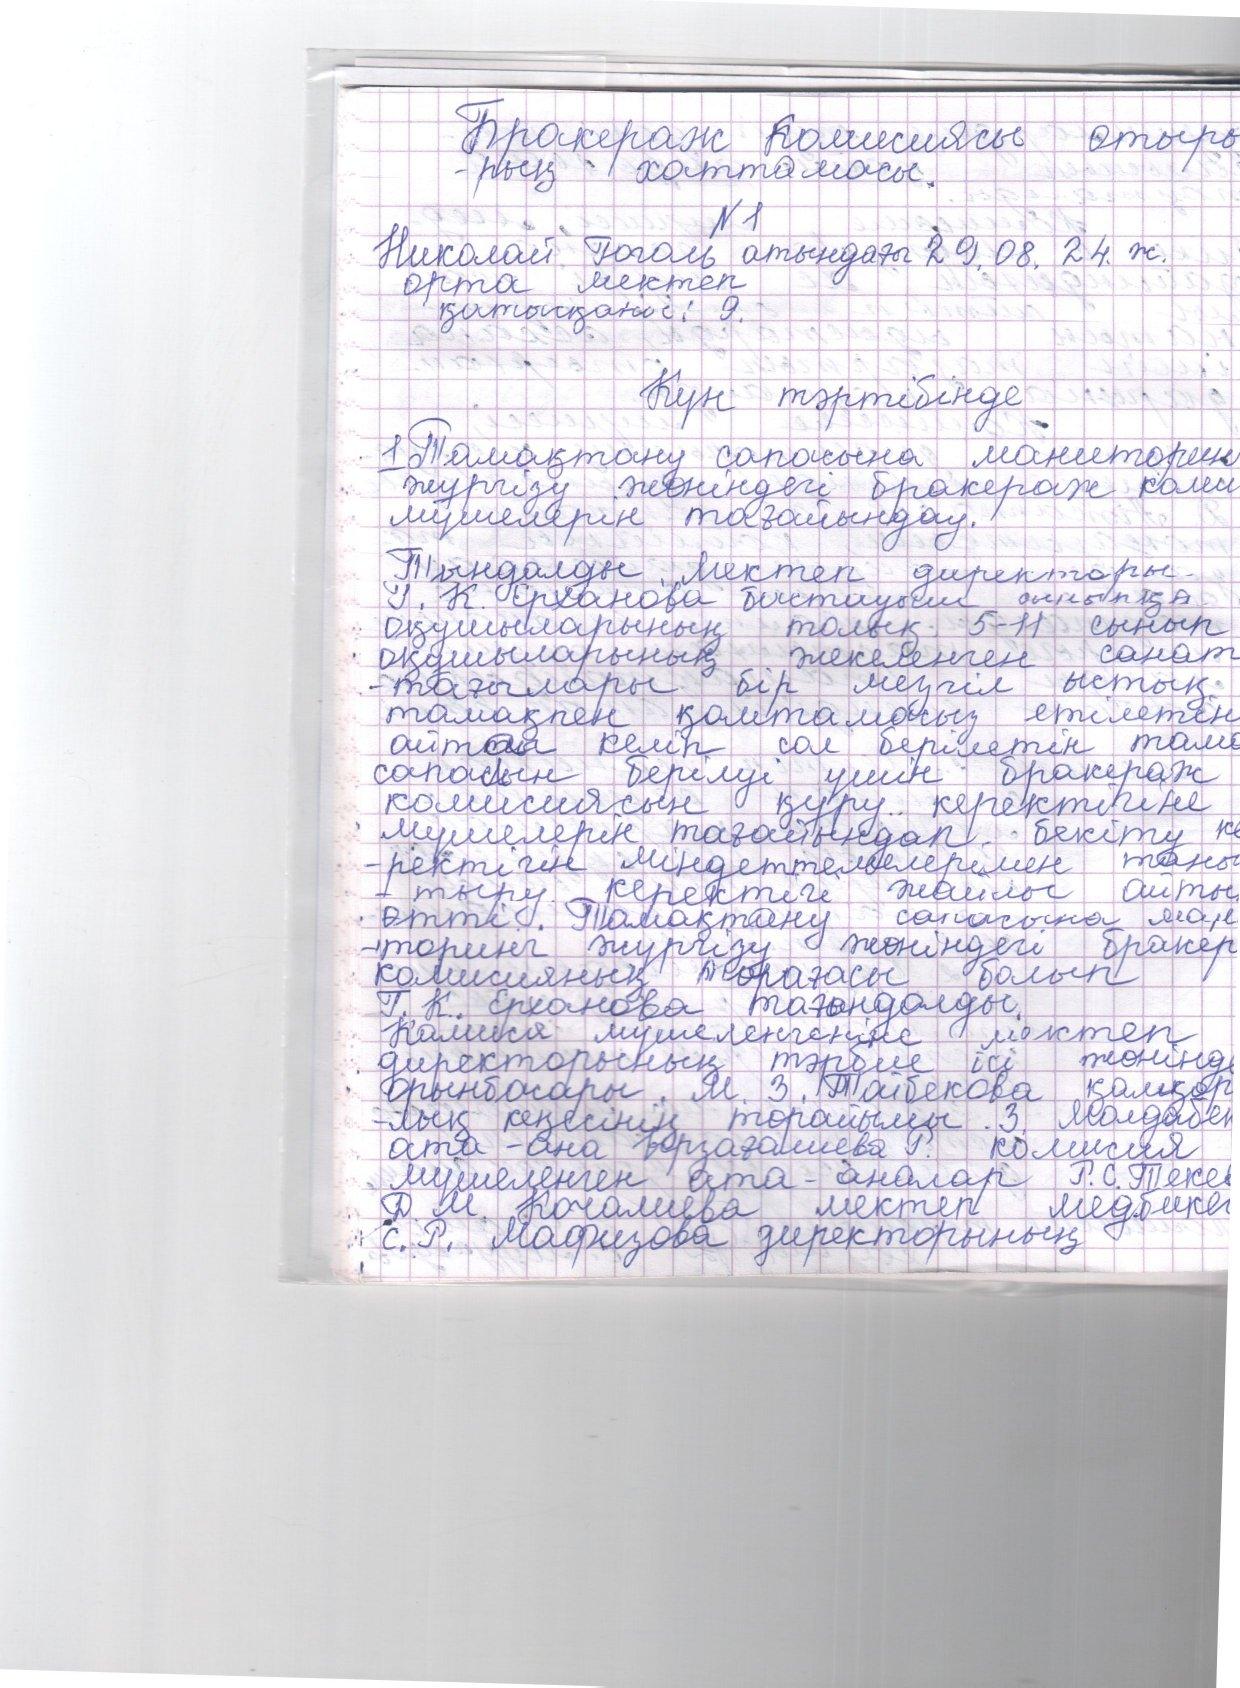 Бракераж комисиясы отыры
-рың хаттамасы.
N 1
Николай Гоголь атындағы 29.08.24.ж.
орта мектеп
қатысқані: 9.
Күн тәртібінде
1 Тамақтану сапасына манитори
жүргізу жөніндегі бракераж коми
мүшелерін тағайындау.
Тыңдалды. Мектеп директоры.
Г. К. Ерханова бастауыш сыныпқа
оқушыларының толық 5-11 сынып
оқушыларының жекеленген санат
-тағылары бір мезгіл ыстық
тамақпен қамтамасыз етілетін
айта келіп сол берілетін тама
сапасын берілуі үшін бракераж
комисиясын құру керектігіне
мүшелерін тағайындап. бекіту ке
-ректігін міндеттемелерімен таны
-тыру керектігі жайлы айтып
өтті. Тамақтану сапасына мани
-торинг жүргізу жөніндегі бракер
комисияның төрағасы болып
Г. К. Ерханова тағандалды.
мүшеленгеніне мектеп
директорының тәрбие ісі жөнінде
орынбасары. М. З. Тайбекова қамқор
-лық кеңесінің төрайымы З. Молдабек
ата-ана Г. комисия
мүшеленген ата-аналар Р.С. Теке
Д М. Кочалиева мектеп медбике
С. Р. Мафизова директорының